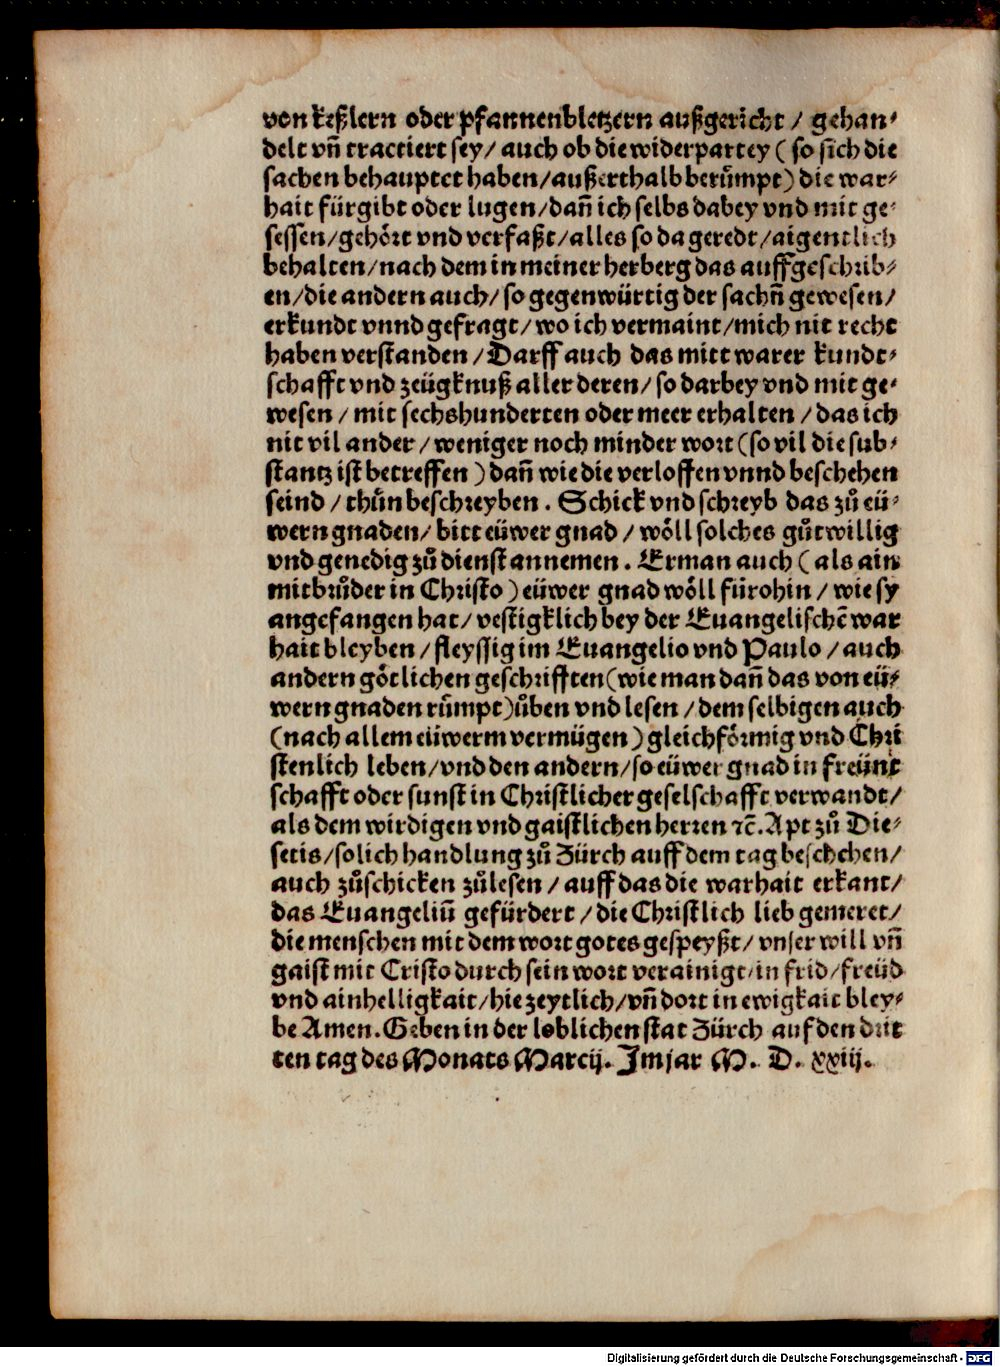 von keßlern oder pfannenbletzern außgericht / gehan⸗
delt vñ tractiert sey/ auch ob die widerpartey ( so sich die
sachen behauptet haben/ausserthalb berůmpt) die war⸗
hait fürgibt oder lugen/dañ ich selbs dabey vnd mit ge⸗
sessen/gehoͤrt vnd verfaßt/alles so da geredt/aigentlich
behalten/nach dem in meiner herberg das auffgeschrib⸗
en/die andern auch/ so gegenwürtig der sachñ gewesen/
erkundt vnnd gefragt/wo ich vermaint/mich nit recht
haben verstanden /Darff auch das mitt warer kundt⸗
schafft vnd zeügknuß aller deren/ so darbey vnd mit ge⸗
wesen / mit sechshunderten oder meer erhalten /das ich
nit vil ander /weniger noch minder wort (so vil die sub⸗
stantz ist betreffen ) dañ wie die verloffen vnnd beschehen
seind / thůn beschreyben . Schick vnd schreyb das zů eü⸗
wern gnaden/ bitt eüwer gnad / woͤll solches gůtwillig
vnd genedig zů dienst annemen . Erman auch ( als ain
mitbrůder in Christo ) eüwer gnad woͤll fürohin / wie sy
angefangen hat/ vestigklich bey der Euangelischē war
hait bleyben / fleyssig im Euangelio vnd Paulo / auch
andern goͤtlichen geschrifften(wie man dañ das von eü⸗
wern gnaden růmpt)ůben vnd lesen /dem selbigen auch
(nach allem eüwerm vermügen ) gleichfoͤrmig vnd Chri
stenlich leben/vnd den andern/so eüwer gnad in freünt
schafft oder sunst in Christlicher geselschafft verwandt/
als dem wirdigen vnd gaistlichen herren ⁊c̄.Apt zů Die⸗
setis/solich handlung zů Zürch auff dem tag beschehen/
auch zůschicken zůlesen / auff das die warhait erkant/
das Euangeliū gefürdert /die Christlich lieb gemeret/
die menschen mit dem wort gotes gespeyßt/ vnser will vñ
gaist mit Cristo durch sein wort verainigt/in frid/freüd
vnd ainhelligkait/hie zeytlich/vñ dort in ewigkait bley⸗
be Amen.Geben in der loblichen stat Zürch auf den drit
ten tag des Monats Marcij. Im jar M. D. xxiij.
Digitalisierung gefördert durch die Deutsche Forschungsgemeinschaft - DFG